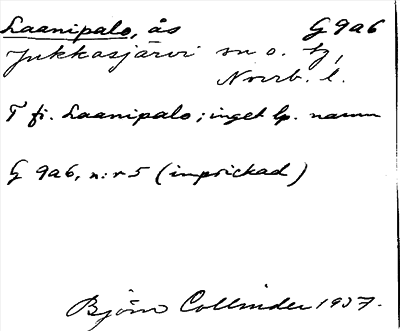 Laanipalo, ås G 9a6
Jukkasjärvi sn o. tg,
Norrb. l.
T fi. Laanipalo; inget lp. namn
G 9a6, n:r 5 (inprickad)
Björn Collinder 1937.